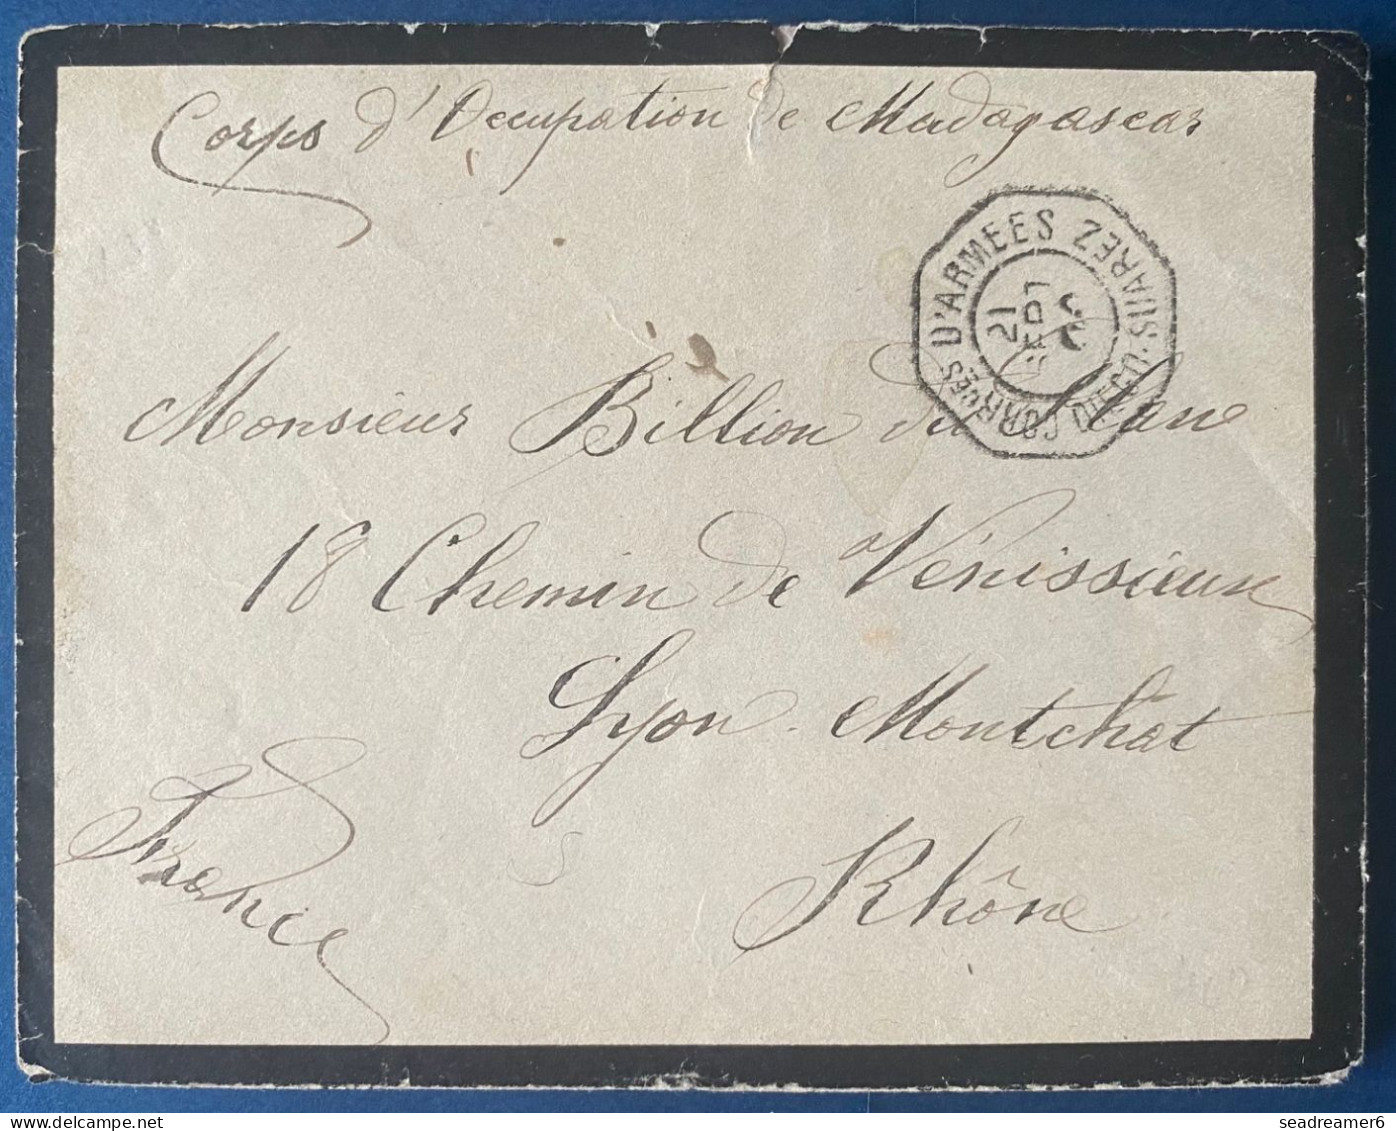 Corps d'Occupation de Madagascar
CORR. D'ARMEES DIEGO-SUAREZ
21
Monsieur Billion du Plan
18 Chemin de Vénissieux
Lyon-Montchat
Rhône
France
seadreamer6